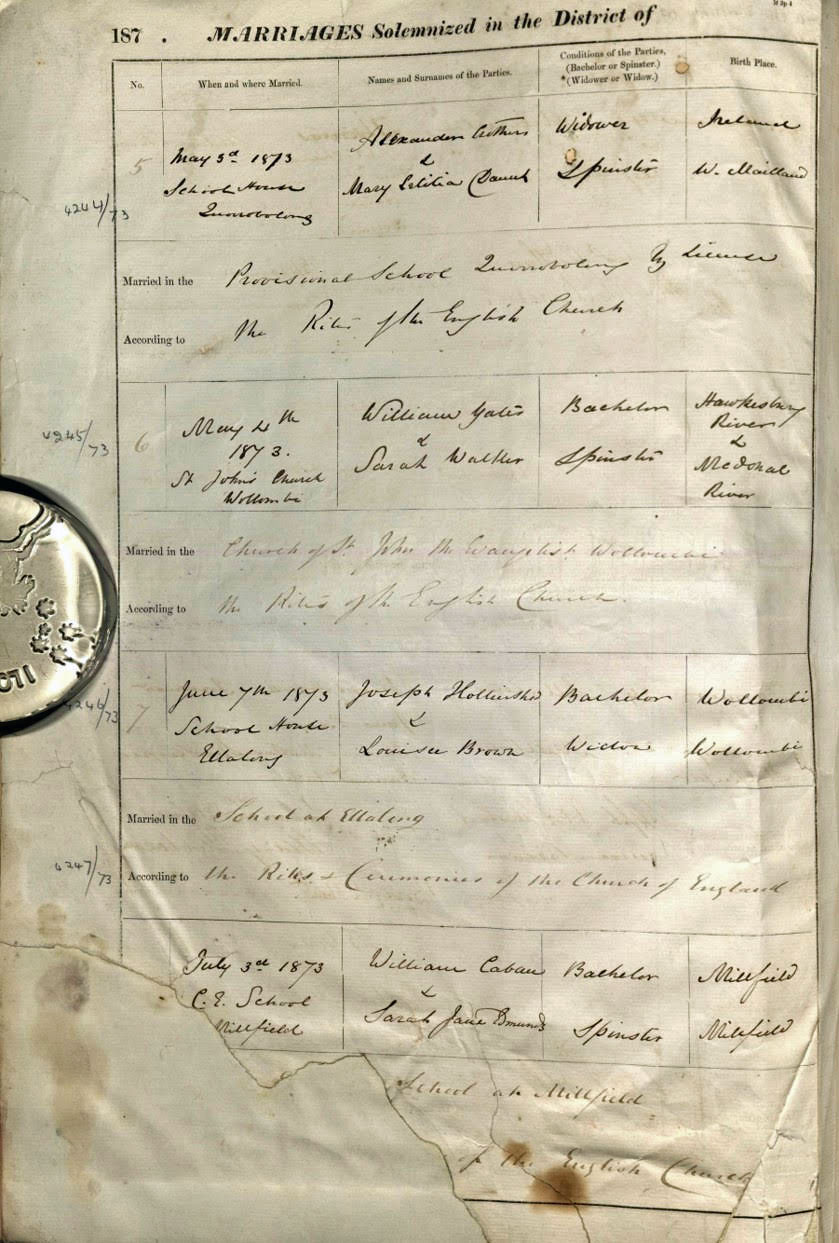 187 . MARRIAGES Solemnized in the District of
No. When and where Married. Names and Surnames of the Parties. Conditions of the Parties, (Bachelor or Spinster.) *(Widower or Widow.) Birth Place.
5 May 3d 1873 Alexander Widower Ireland
4244/73 School House & Spinster W. Maitland
Quorrobolong Mary Letitia
Married in the Provisional School Quorrobolong by License
According to the Rites of the English Church
4245/73 6 May 4th William Yates Bachelor Hawkesbury
1873. & River
St John's Church Sarah Walker Spinster &
Wollombi McDonal
River
Married in the Church of St John the Evangelist Wollombi
According to the Rites of the English Church.
4246/73 7 June 7th 1873 Joseph Bachelor Wollombi
School House &
Ellalong Louisa Brown Widow Wollombi
Married in the School at Ellalong
4247/73 According to the Rites & Ceremonies of the Church of England
July 3rd 1873 William Caban Bachelor Millfield
C. E. School &
Millfield Sarah Jane Spinster Millfield
School at Millfield
of the English Church